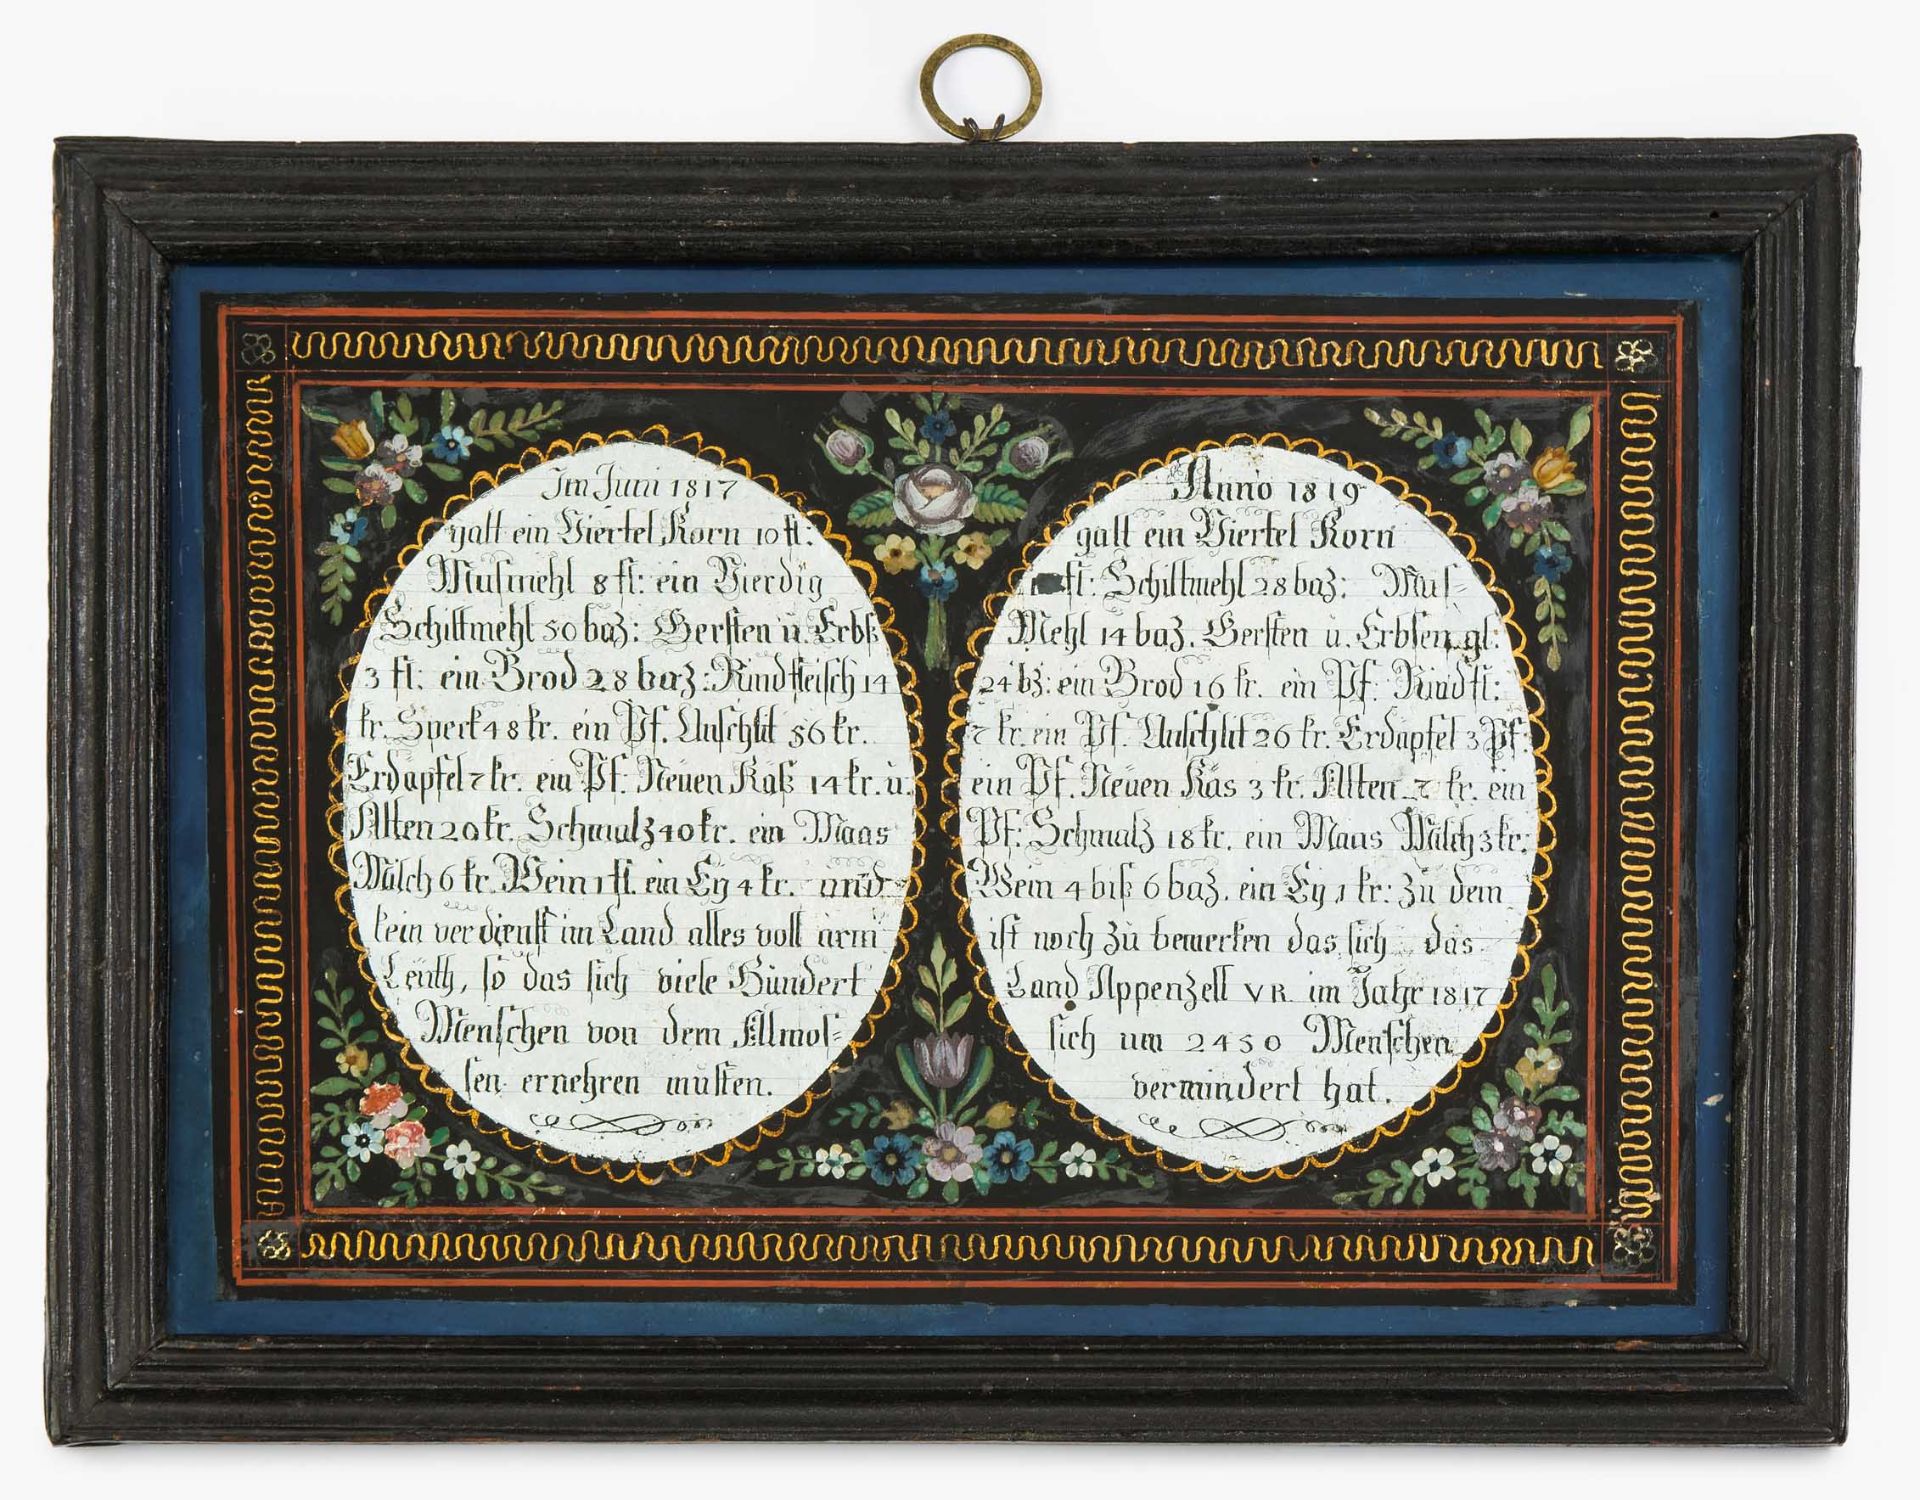 Im Juni 1817
galt ein Viertel Korn 10 fl:
Musmehl 8 fl: ein Vierdig
Schiltmehl 50 baz: Gersten u. Erbß
3 fl: ein Brod 28 baz: Rindfleisch 14
kr. Speck 48 kr. ein Pf. Unschlit 56 kr.
Erdäpfel 7 kr. ein Pf: Neuen Käß 14 kr. u.
Alten 20 kr. Schmalz 40 kr. ein Maas
Milch 6 kr. Wein 1 fl. ein Ey 4 kr. und
kein verdienst im Land alles voll arm
Leuth, so das sich viele Hundert
Menschen von dem Allmos=
sen ernehren musten.
Anno 1819
galt ein Viertel Korn
fl: Schiltmehl 28 baz: Mus=
Mehl 14 baz. Gersten u. Erbsen gl:
24 bz: ein Brod 16 kr. ein Pf: Rindfl:
7 kr. ein Pf. Unschlit 26 kr. Erdäpfel 3 Pf:
ein Pf. Neuen Käs 3 kr. Alten 7 kr. ein
Pf: Schmalz 18 kr. ein Maas Milch 3 kr:
Wein 4 biß 6 baz. ein Ey 1 kr: zu dem
ist noch zu bemerken das sich das
Land Appenzell VR. im Jahr 1817
sich um 2450 Menschen
vermindert hat.